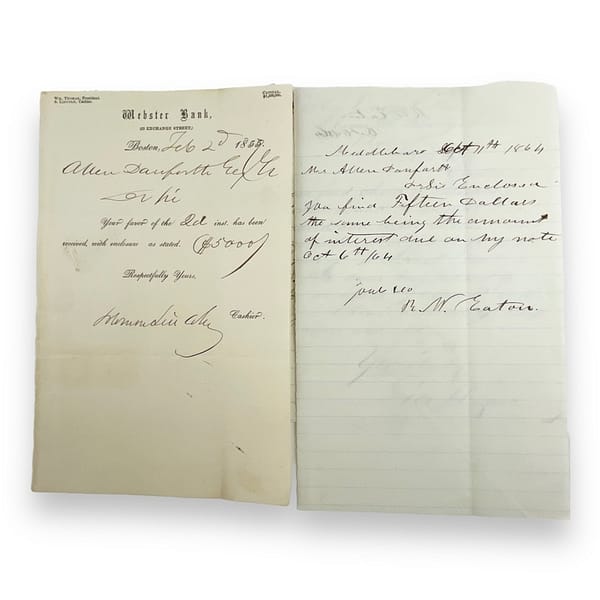 Wm. Thomas, President.
S. Lincoln, Cashier.
Capital,
Webster Bank,
(53 EXCHANGE STREET,)
Boston, Feb 2d 186
Allen Danforth
Dr Sir
Your favor of the 2d inst. has been
received, with enclosure as stated. ($5000)
Respectfully Yours,
Solomon Lincoln Cashier.
Middleboro Oct 11th 1864
Mr Allen Danforth
Dr Sir Enclosed
you find Fifteen Dollars
the same being the amount
of interest due on my note
Oct 6th/64
B. W. Eaton.